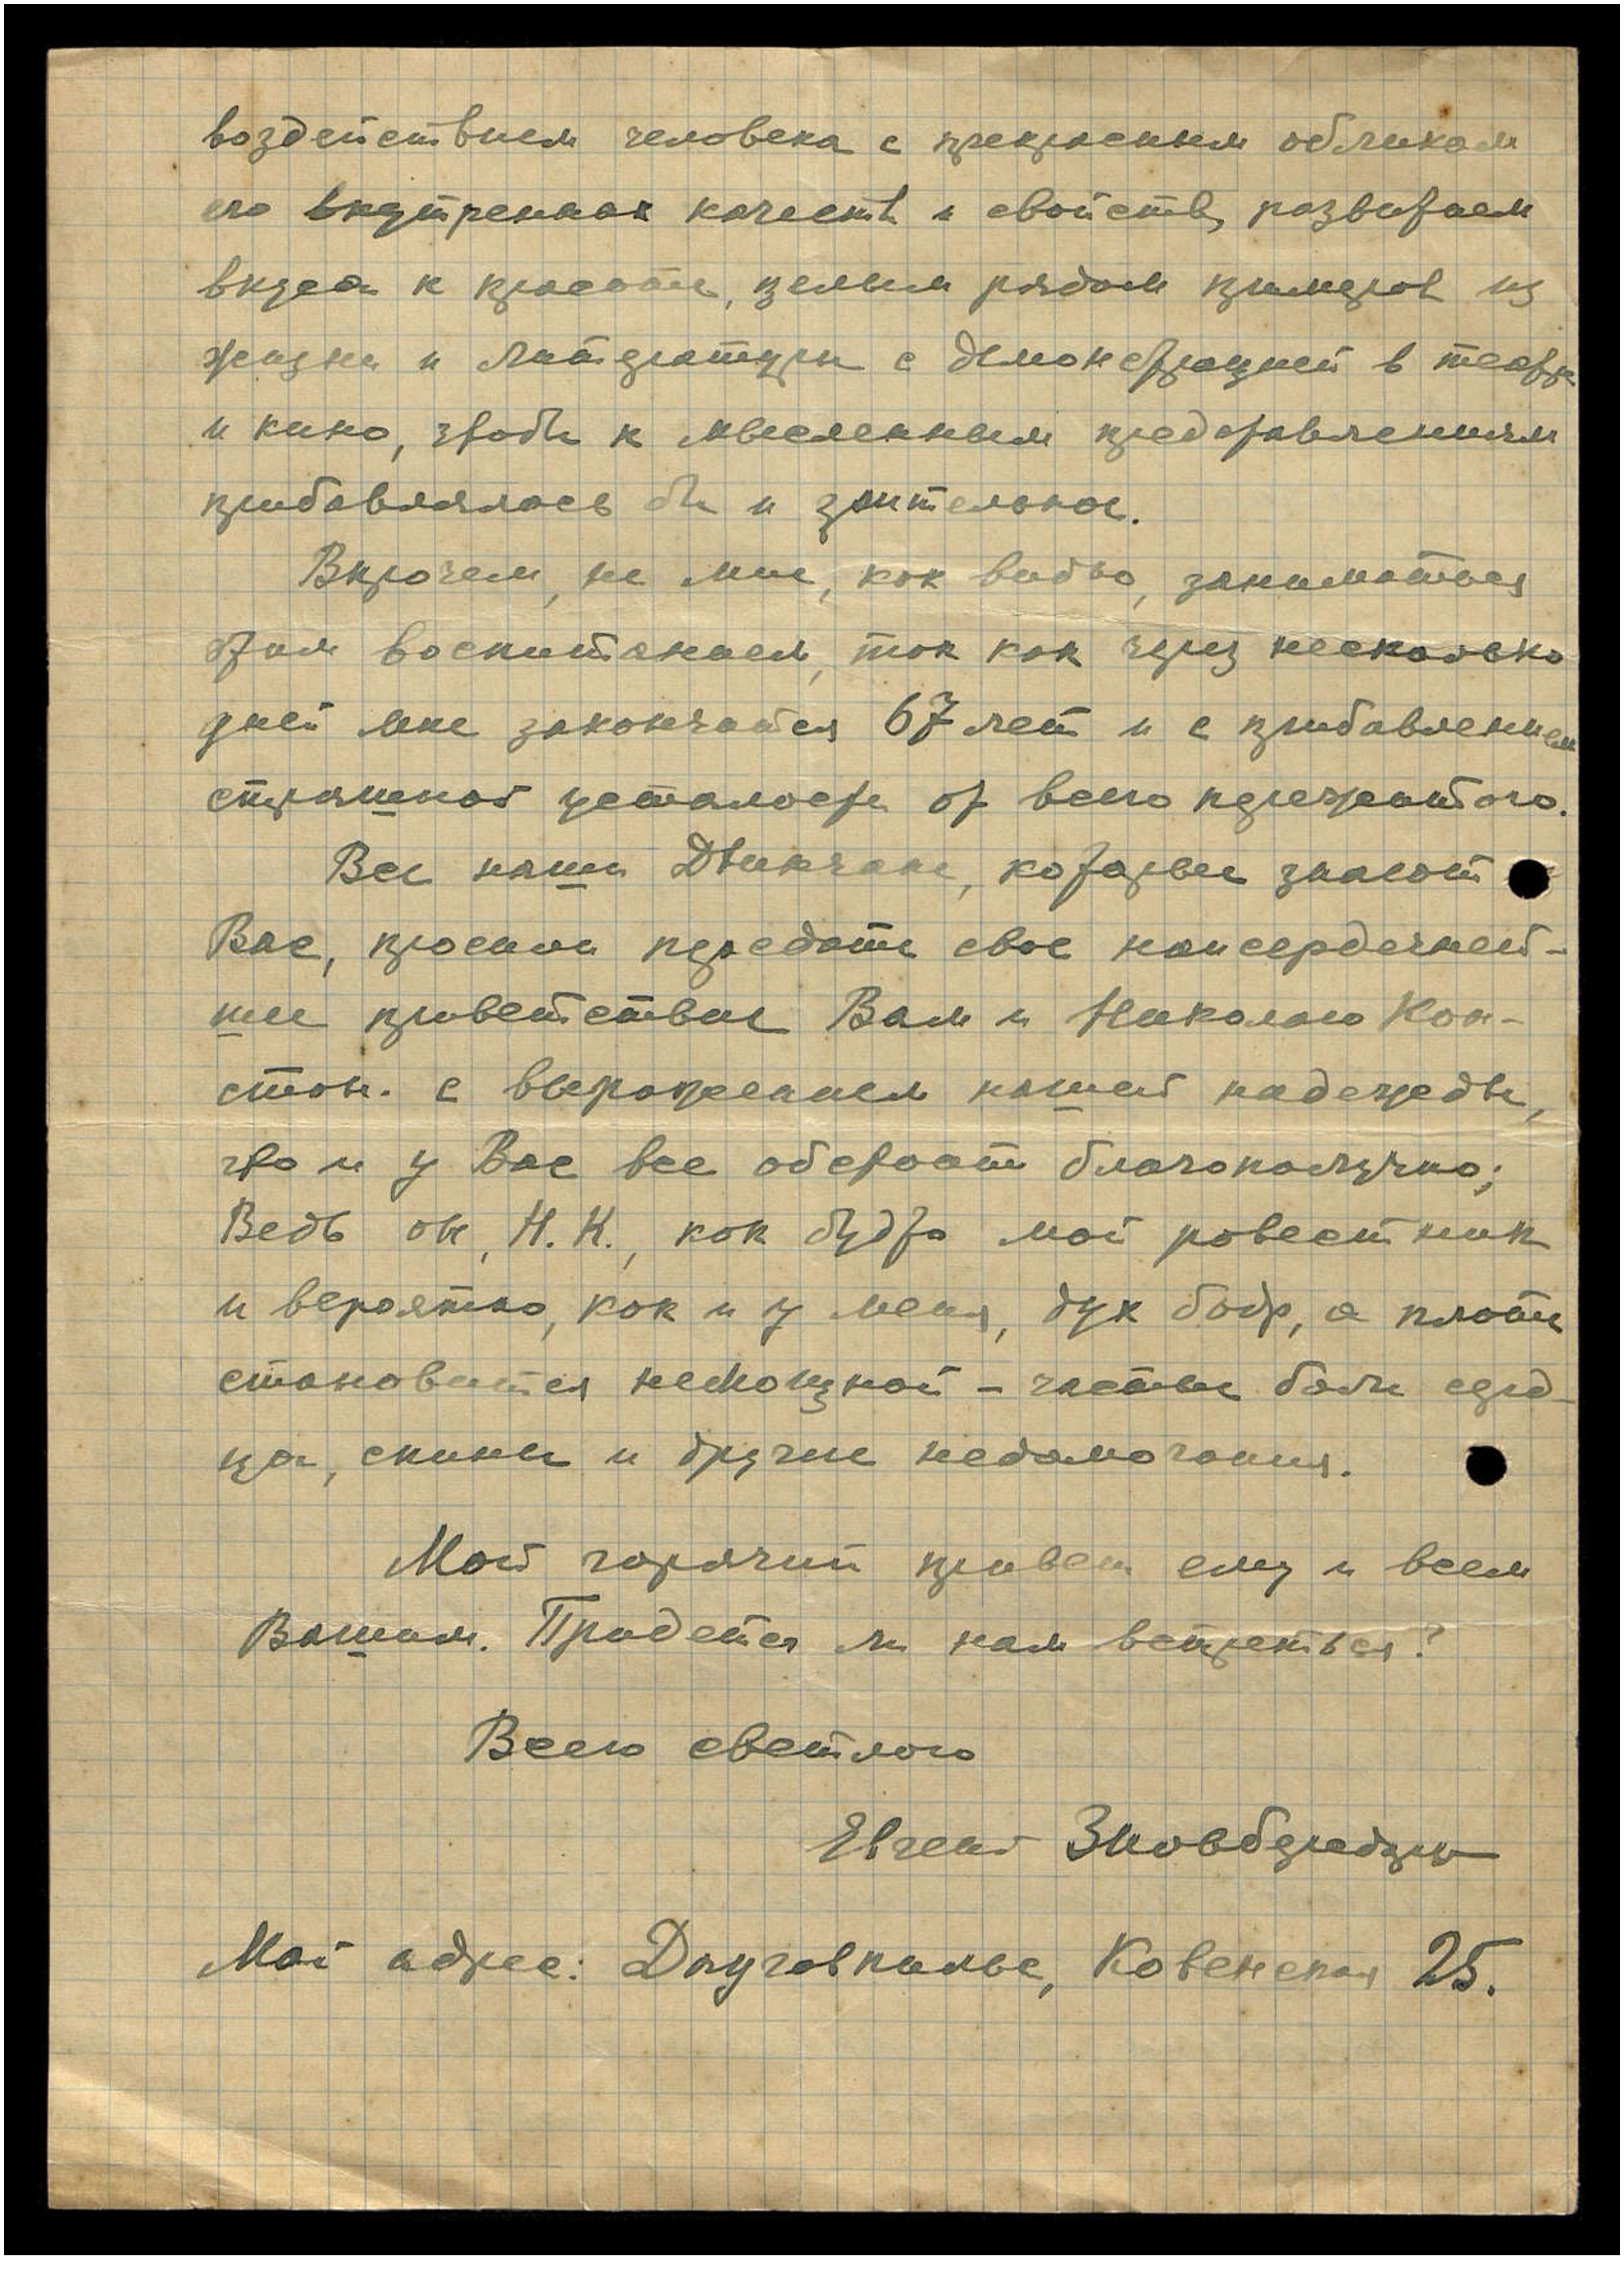 воздействием человека с прекрасным обликом
его внутренних качеств и свойств, развитием
вкуса к красоте, целым рядом примеров из
жизни и литературы с демонстрацией в театре
и кино, чтобы к мысленным представлениям
прибавлялось бы и зрительное.
Впрочем, не мне, как видно, заниматься
этим воспитанием, так как через несколько
дней мне закончатся 67 лет и с прибавлением
страшной усталости от всего пережитого.
Все наши Двинчане, которые знают
Вас, просили передать свое наисердечней-
шее приветствие Вам и Николаю Кон-
стан. с выражением нашей надежды,
что и у Вас все обстоит благополучно;
Ведь он, Н.К., как будто мой ровестник
и вероятно, как и у меня, дух бодр, а плоть
становится немощной – частые боли серд-
ца, спины и другие недомогания.
Мой горячий привет ему и всем
Вашим. Придется ли нам встретиться?
Всего светлого
Евгений
Мой адрес: Даугавпилс, Ковенская 25.